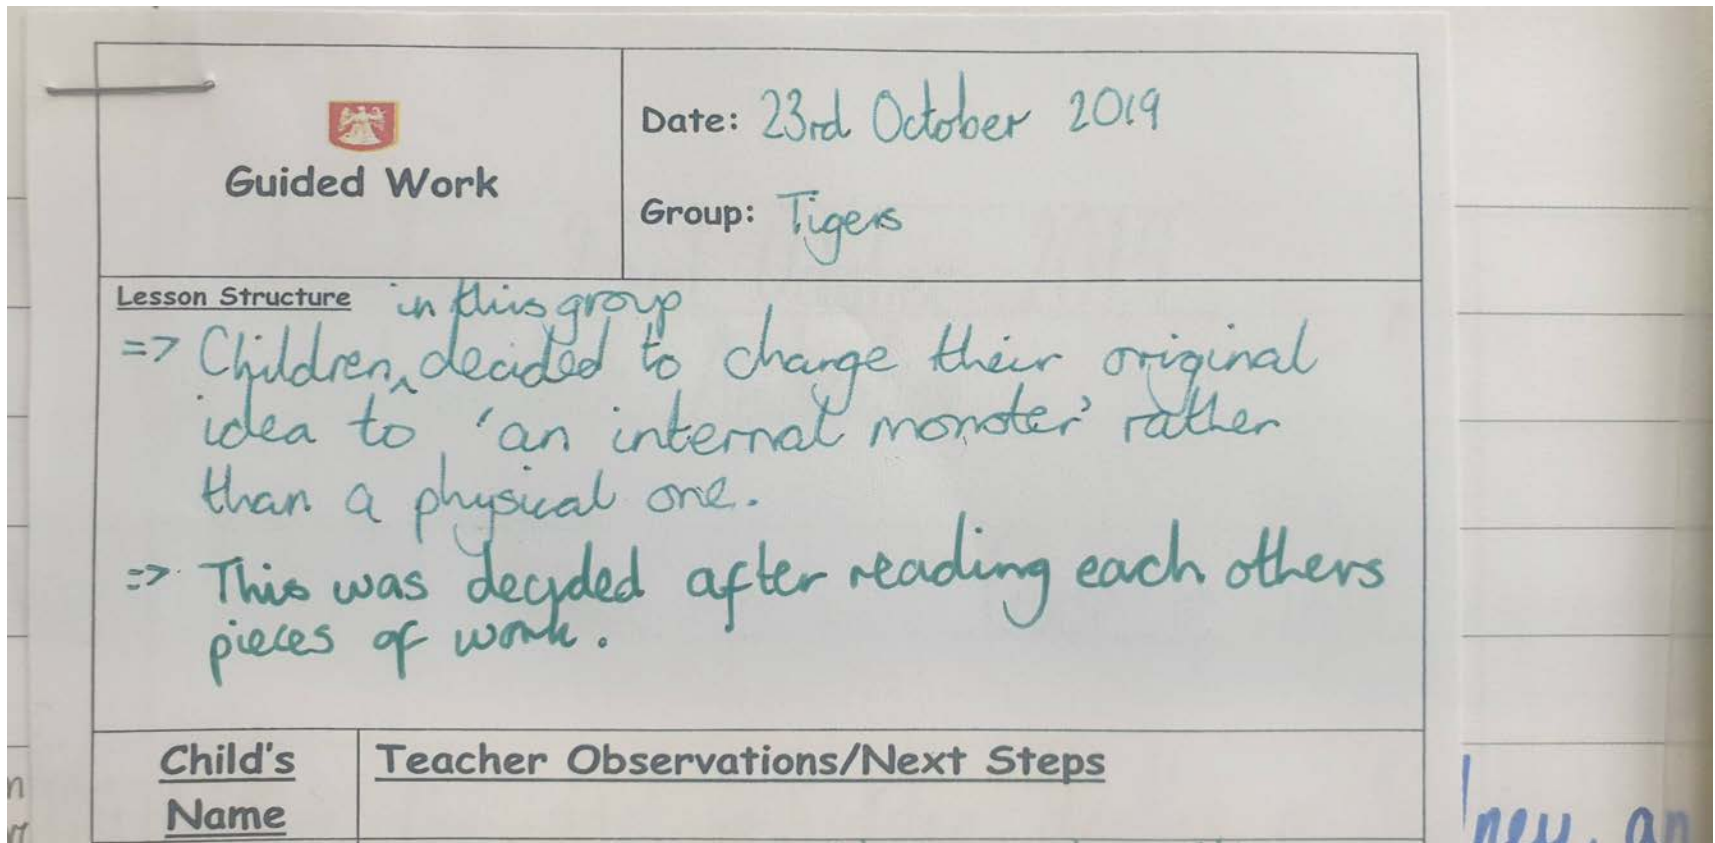 Guided Work
Date: 23rd October 2019
Group: Tigers
Lesson Structure
in this group
=> Children ^ decided to change their original
idea to 'an internal monster' rather
than a physical one.
=> This was decided after reading each others
pieces of work.
Child's
Name
Teacher Observations/Next Steps
an